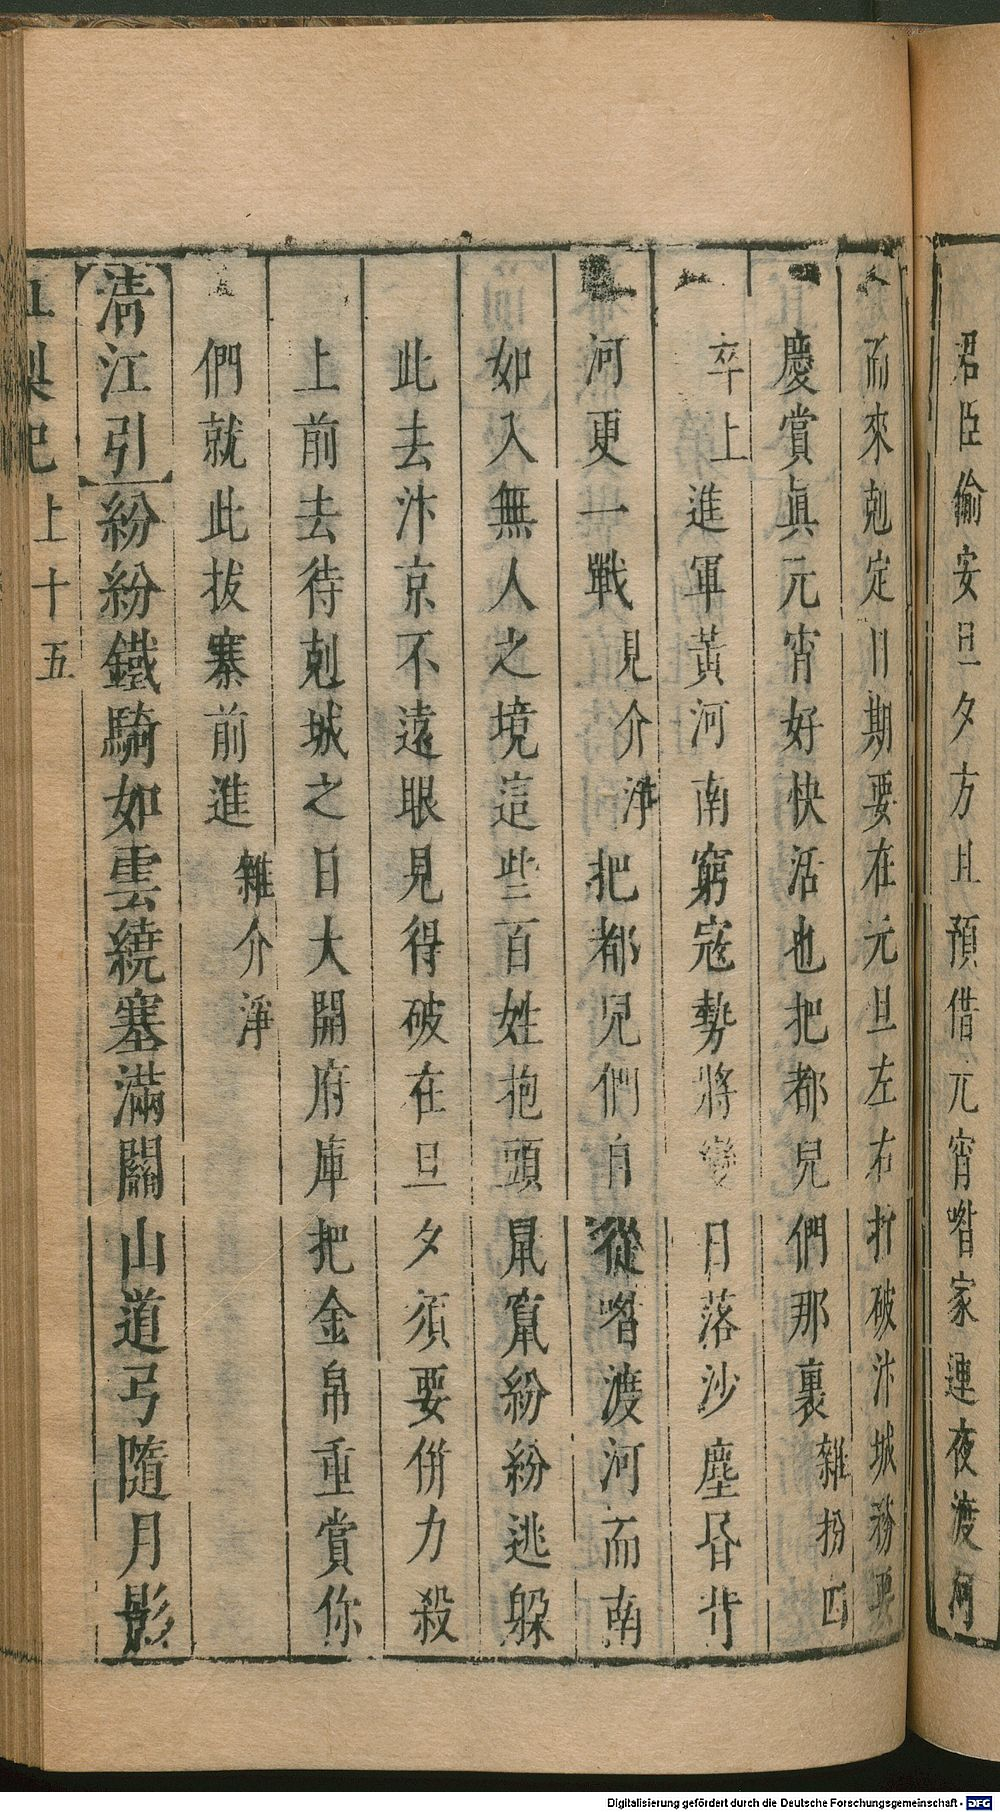 君臣偷安旦夕方且預借元宵喒家連夜渡河
而來剋定日期要在元旦左右打破汴城務要
慶賞眞元宵好快活也把都兒們那裏雜扮四
卒上進軍黃河南窮寇勢將變日落沙塵昏背
河更一戰見介淨把都兒們自從喒渡河而南
如入無人之境這些百姓抱頭鼠竄紛紛逃躲
此去汴京不遠眼見得破在旦夕須要併力殺
上前去待剋城之日大開府庫把金帛重賞你
們就此拔寨前進雜介淨
【淸江引】紛紛鐵騎如雲繞塞滿關山道弓隨月影
紅梨記 上 十五
Digitalisierung gefördert durch die Deutsche Forschungsgemeinschaft - DFG